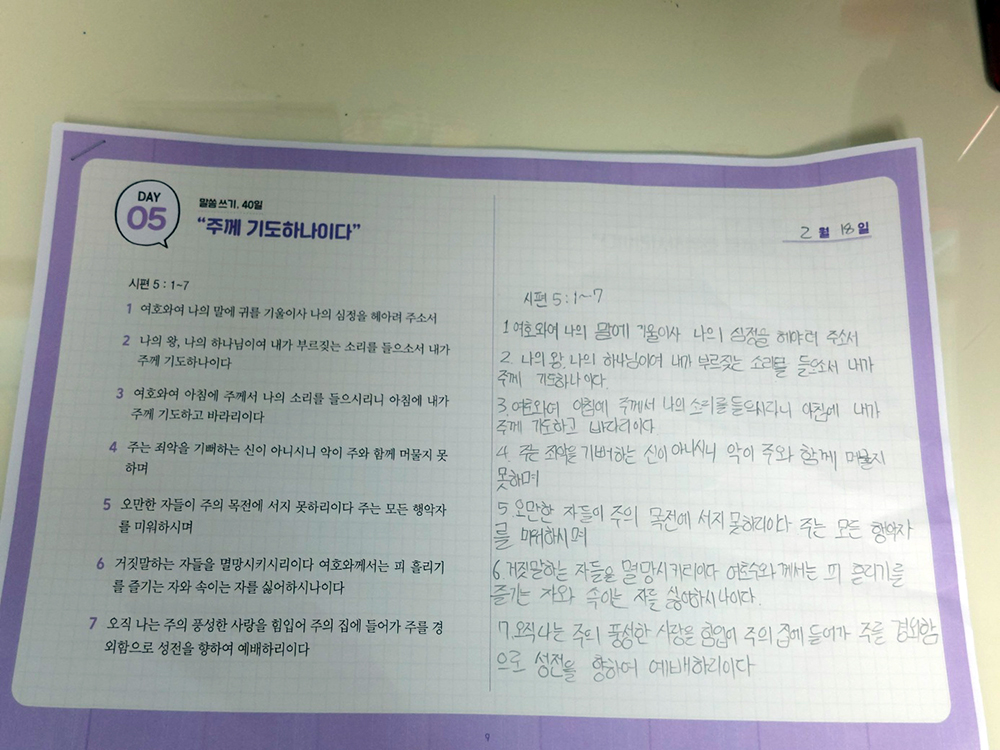 DAY
05
말씀 쓰기, 40일
“주께 기도하나이다”
2월 18일
시편 5 : 1~7
1 여호와여 나의 말에 귀를 기울이사 나의 심정을 헤아려 주소서
2 나의 왕, 나의 하나님이여 내가 부르짖는 소리를 들으소서 내가
주께 기도하나이다
3 여호와여 아침에 주께서 나의 소리를 들으시리니 아침에 내가
주께 기도하고 바라리이다
4 주는 죄악을 기뻐하는 신이 아니시니 악이 주와 함께 머물지 못
하며
5 오만한 자들이 주의 목전에 서지 못하리이다 주는 모든 행악자
를 미워하시며
6 거짓말하는 자들을 멸망시키시리이다 여호와께서는 피 흘리기
를 즐기는 자와 속이는 자를 싫어하시나이다
7 오직 나는 주의 풍성한 사랑을 힘입어 주의 집에 들어가 주를 경
외함으로 성전을 향하여 예배하리이다
시편 5:1~7
1 여호와여 나의 말에 기울이사 나의 심정을 헤아려 주소서
2. 나의 왕, 나의 하나님이여 내가 부르짖는 소리를 들으소서 내가
주께 기도하나이다.
3. 여호와여 아침에 주께서 나의 소리를 들으시리니 아침에 내가
주께 기도하고 바라리이다
4. 주는 죄악을 기뻐하는 신이 아니시니 악이 주와 함께 머물지
못하며
5 오만한 자들이 주의 목전에 서지 못하리이다 주는 모든 행악자
를 미워하시며
6. 거짓말하는 자들을 멸망시키리이다 여호수와께서는 피 흘리기를
즐기는 자와 속이는 자를 싫어하시나이다.
7. 오직 나는 주의 풍성한 사랑을 힘입어 주의 집에 들어가 주를 경외함
으로 성전을 향하여 예배하리이다
9